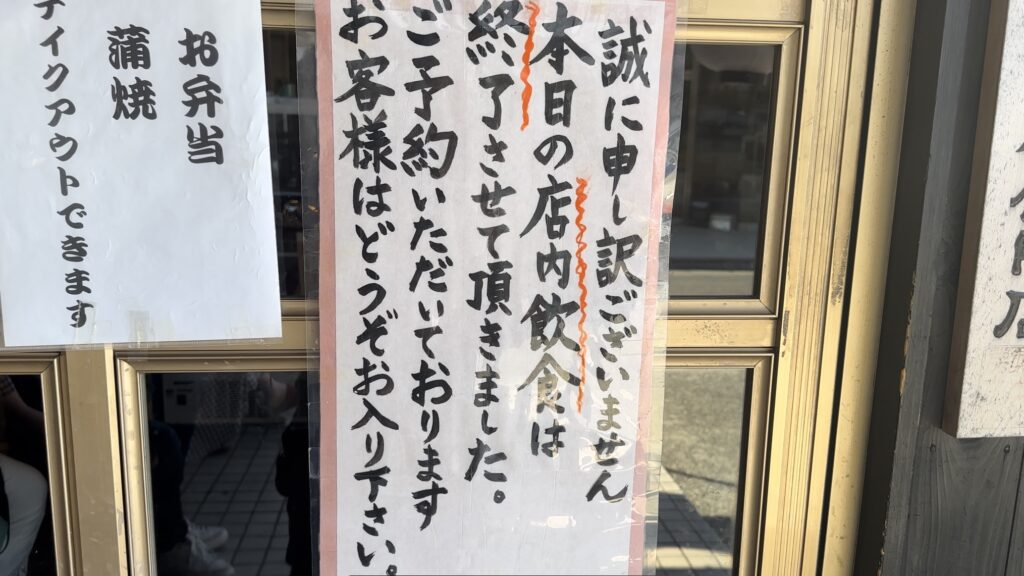 誠に申し訳ございません
本日の店内飲食は
終了させて頂きました。
ご予約いただいております
お客様はどうぞお入り下さい。
お弁当
蒲焼
テイクアウトできます